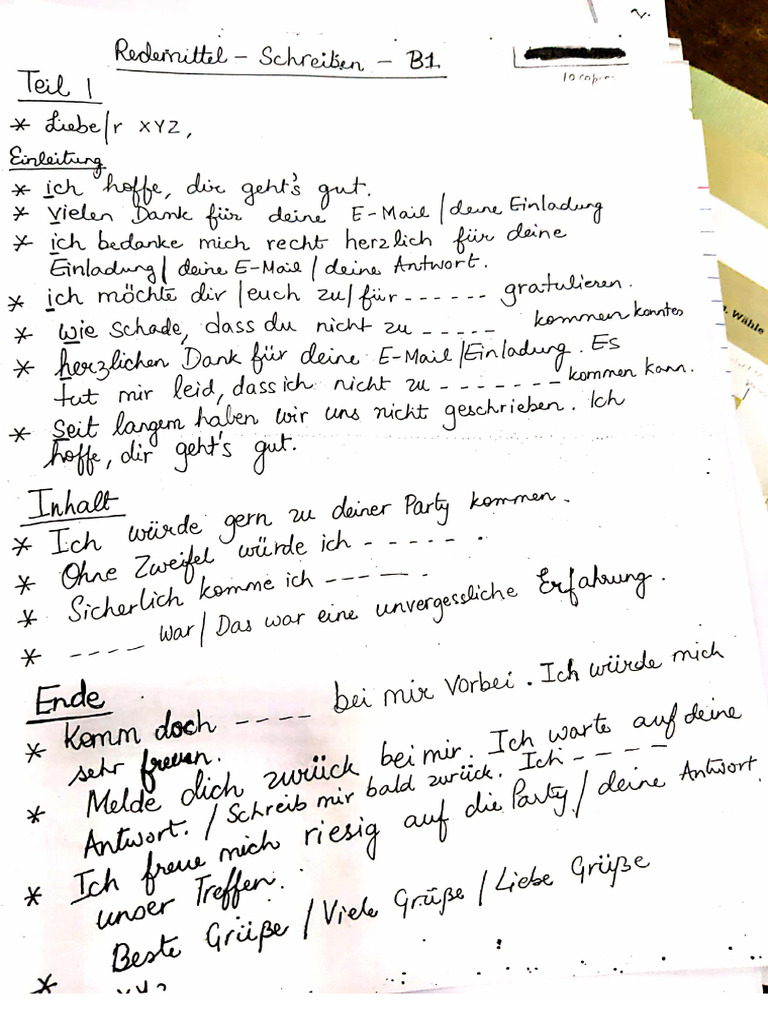 2.
Redemittel - Schreiben - B1
10 copies
Teil 1
* Liebe/r XYZ,
Einleitung
* ich hoffe, dir geht's gut.
* vielen Dank für deine E-Mail / deine Einladung
* ich bedanke mich recht herzlich für deine
Einladung / deine E-Mail / deine Antwort.
* ich möchte dir / euch zu / für ------ gratulieren.
* wie schade, dass du nicht zu ----- kommen konntes
* herzlichen Dank für deine E-Mail / Einladung. Es
tut mir leid, dass ich nicht zu ------- kommen kann.
* Seit langem haben wir uns nicht geschrieben. Ich
hoffe, dir geht's gut.
Wähle
Inhalt
* Ich würde gern zu deiner Party kommen.
* Ohne Zweifel würde ich ----- .
* Sicherlich komme ich ----- .
* ---- war / Das war eine unvergessliche Erfahrung.
Ende
* Komm doch ---- bei mir vorbei. Ich würde mich
sehr freuen.
* Melde dich zurück bei mir. Ich warte auf deine
Antwort. / Schreib mir bald zurück. Ich ----
* Ich freue mich riesig auf die Party / deine Antwort
unser Treffen.
Beste Grüße / Viele Grüße / Liebe Grüße
*